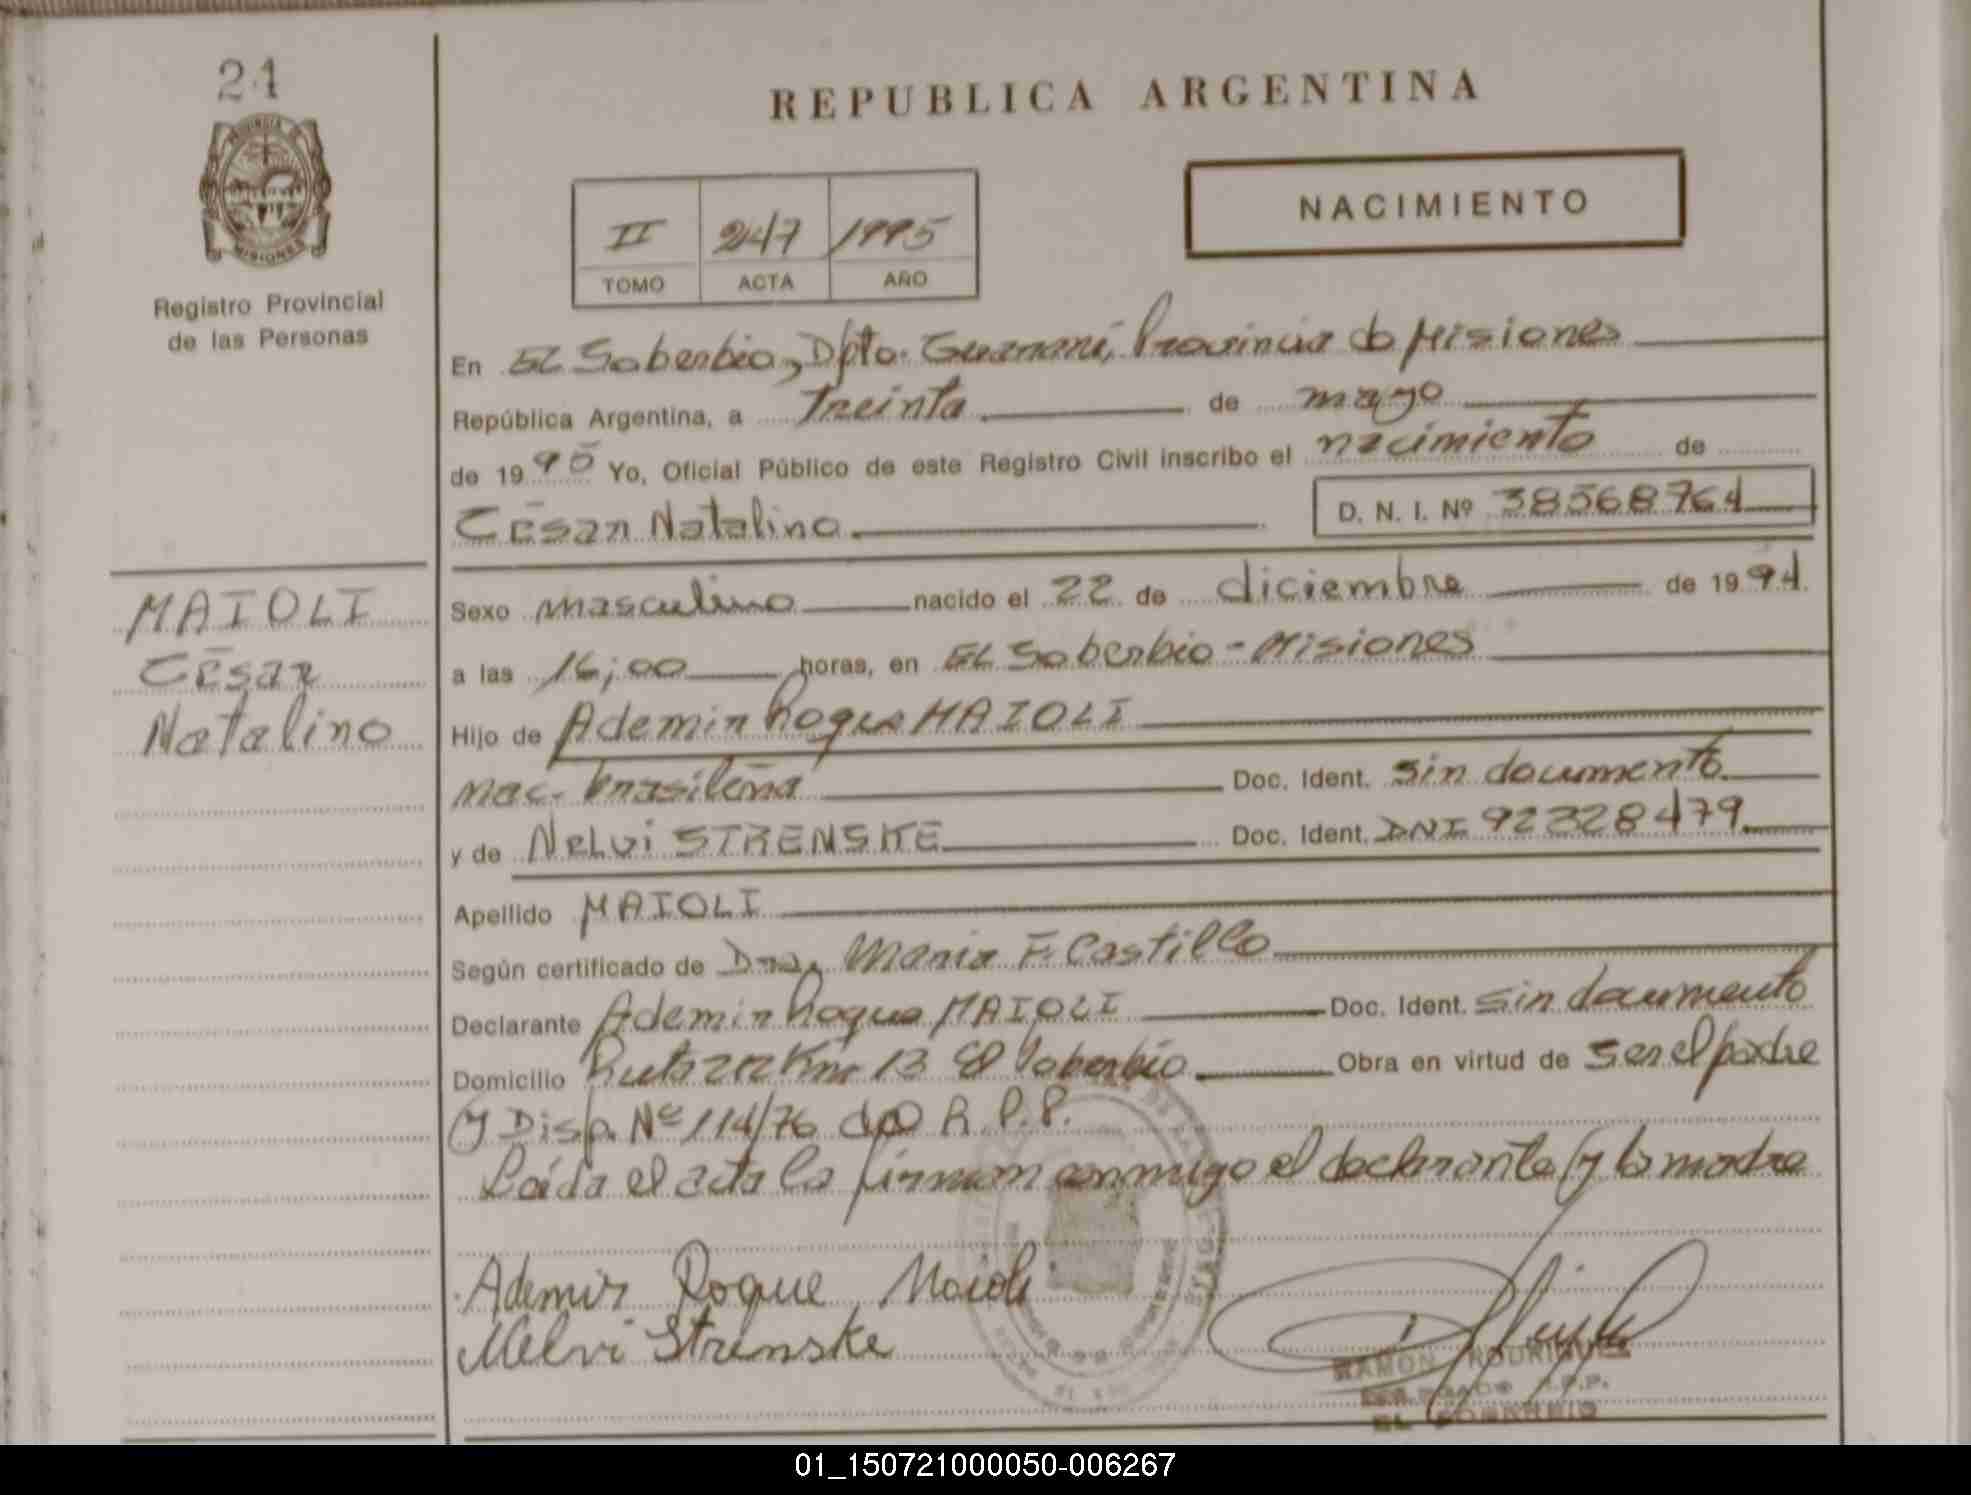 21
REPUBLICA ARGENTINA
PROVINCIA DE
MISIONES
Registro Provincial
de las Personas
II 247 1995
TOMO ACTA AÑO
NACIMIENTO
En EL Soberbio, Dpto. Guaraní, Provincia de Misiones
República Argentina, a Treinta de mayo
de 1995 Yo, Oficial Público de este Registro Civil inscribo el nacimiento de
César Natalino D. N. I. Nº 38568764
MAIOLI
César
Natalino
Sexo masculino nacido el 22 de diciembre de 1994.
a las 16,00 horas, en EL Soberbio - Misiones
Hijo de Ademir Roque MAIOLI
nac. brasileña Doc. Ident. sin documento
y de Nelvi STRENSKE Doc. Ident. DNI 92328479
Apellido MAIOLI
Según certificado de Dra. Maria F. Castillo
Declarante Ademir Roque MAIOLI Doc. Ident. sin documento
Domicilio Ruta 212 Km 13 El Soberbio Obra en virtud de ser el padre
y Disp. Nº 114/76 del R.P.P.
Leída el acta la firman conmigo el declarante y la madre
Ademir Roque Maioli
Melvi Strenske
RAMON RODRIGUEZ
R.P.P.
EL SOBERBIO
01_150721000050-006267